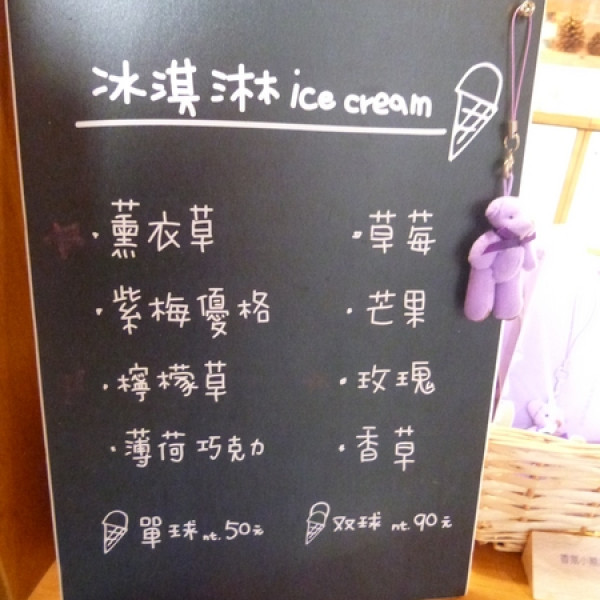 冰淇淋 ice cream
·薰衣草 ·草莓
·紫梅優格 ·芒果
·檸檬草 ·玫瑰
·薄荷巧克力 ·香草
單球 nt.50元 双球 nt.90元
香氛小熊